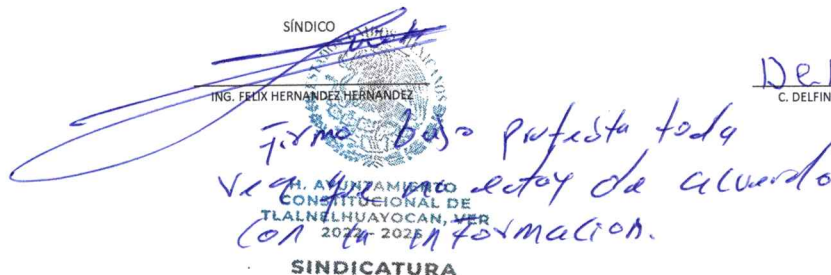 SÍNDICO
ESTADOS UNIDOS MEXICANOS
ING. FELIX HERNANDEZ HERNANDEZ
C. DELFIN
Firmo bajo protesta toda
vez que no estoy de acuerdo
con la informacion.
H. AYUNTAMIENTO
CONSTITUCIONAL DE
TLALNELHUAYOCAN, VER
2022 - 2025
SINDICATURA